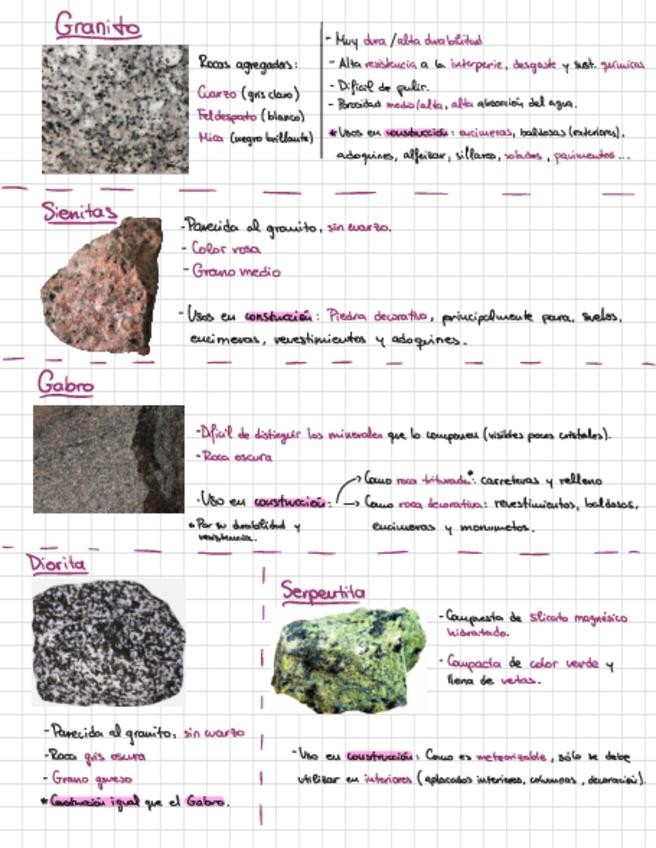 Granito
Rocas agregadas:
Cuarzo (gris claro)
Feldespato (blanco)
Mica (negro brillante)
- Muy dura / alta durabilidad
- Alta resistencia a la interperie, desgaste y sust. químicas
- Difícil de pulir.
- Porosidad media/alta, alta absorción del agua.
* Usos en construcción: encimeras, baldosas (exteriores),
adoquines, alfeizar, sillares, solados, pavimentos...
Sienitas
- Parecida al granito, sin cuarzo.
- Color rosa
- Grano medio
- Usos en construcción: Piedra decorativa, principalmente para, suelos,
encimeras, revestimientos y adoquines.
Gabro
- Difícil de distinguir los minerales que lo componen (visibles pocos cristales).
- Roca oscura
- Uso en construcción:
→ Como roca triturada*: carreteras y relleno
→ Como roca decorativa: revestimientos, baldosas,
encimeras y monumetos.
* Por su durabilidad y
resistencia.
Diorita
- Parecida al granito, sin cuarzo
- Roca gris oscura
- Grano grueso
* Construcción igual que el Gabro.
Serpentita
- Compuesta de silicato magnésico
hidratado.
- Compacta de color verde y
llena de vetas.
- Uso en construcción: Como es meteorizable, sólo se debe
utilizar en interiores (aplacados interiores, columnas, decoración).